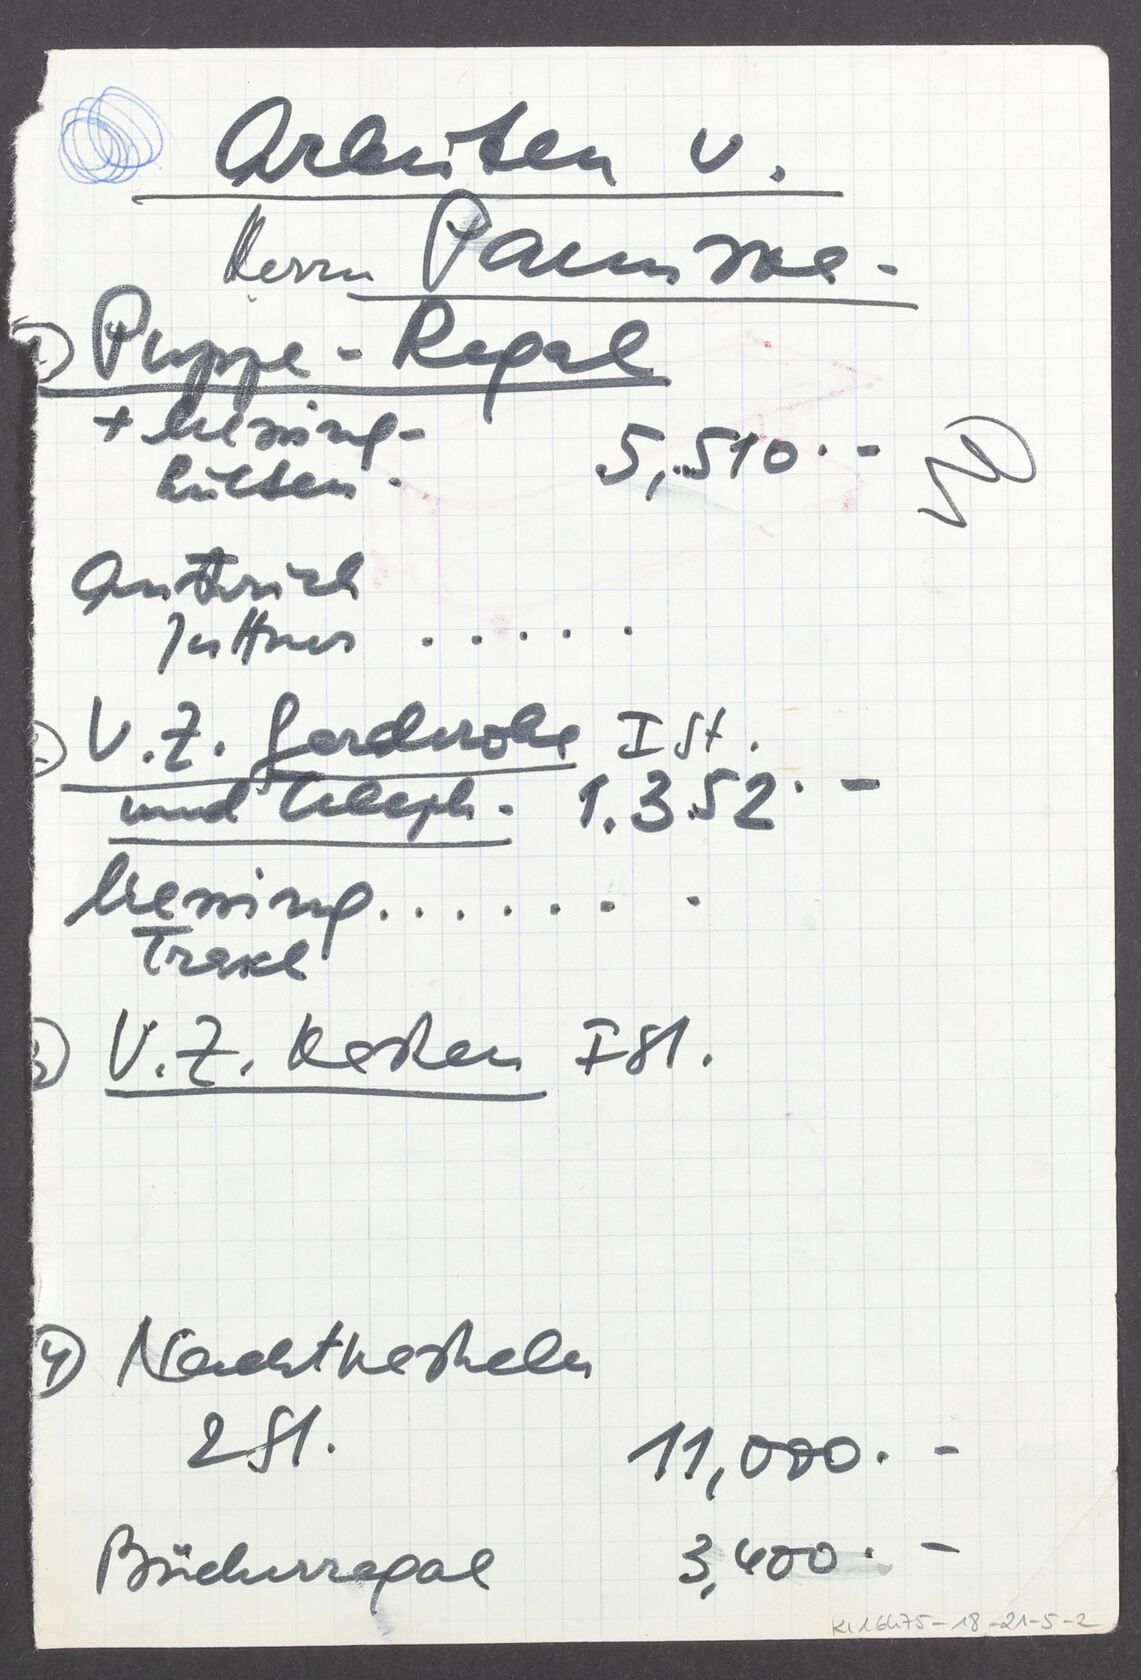 Arbeiten v.
Herrn
1) Puppe - Regal
+ Messing-
hülsen. 5,510.-
Anstrich
Juttner . . . . .
2) V.Z. Garderobe I St.
und Teleph. 1.352.-
Messing . . . . . . .
3) V.Z. Kasten I St.
4) Nachtkasteln
2 St. 11,000.-
Bücherregal 3,400.-
KI 16475-18-21-5-2